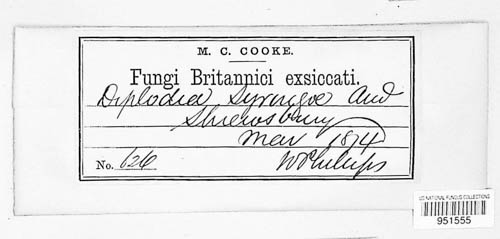 M. C. COOKE.
Fungi Britannici exsiccati.
Diplodia Syringae Aud
Shrewsbury
Mar 1874
No. 626
W Phillips
US NATIONAL FUNGUS COLLECTIONS
951555